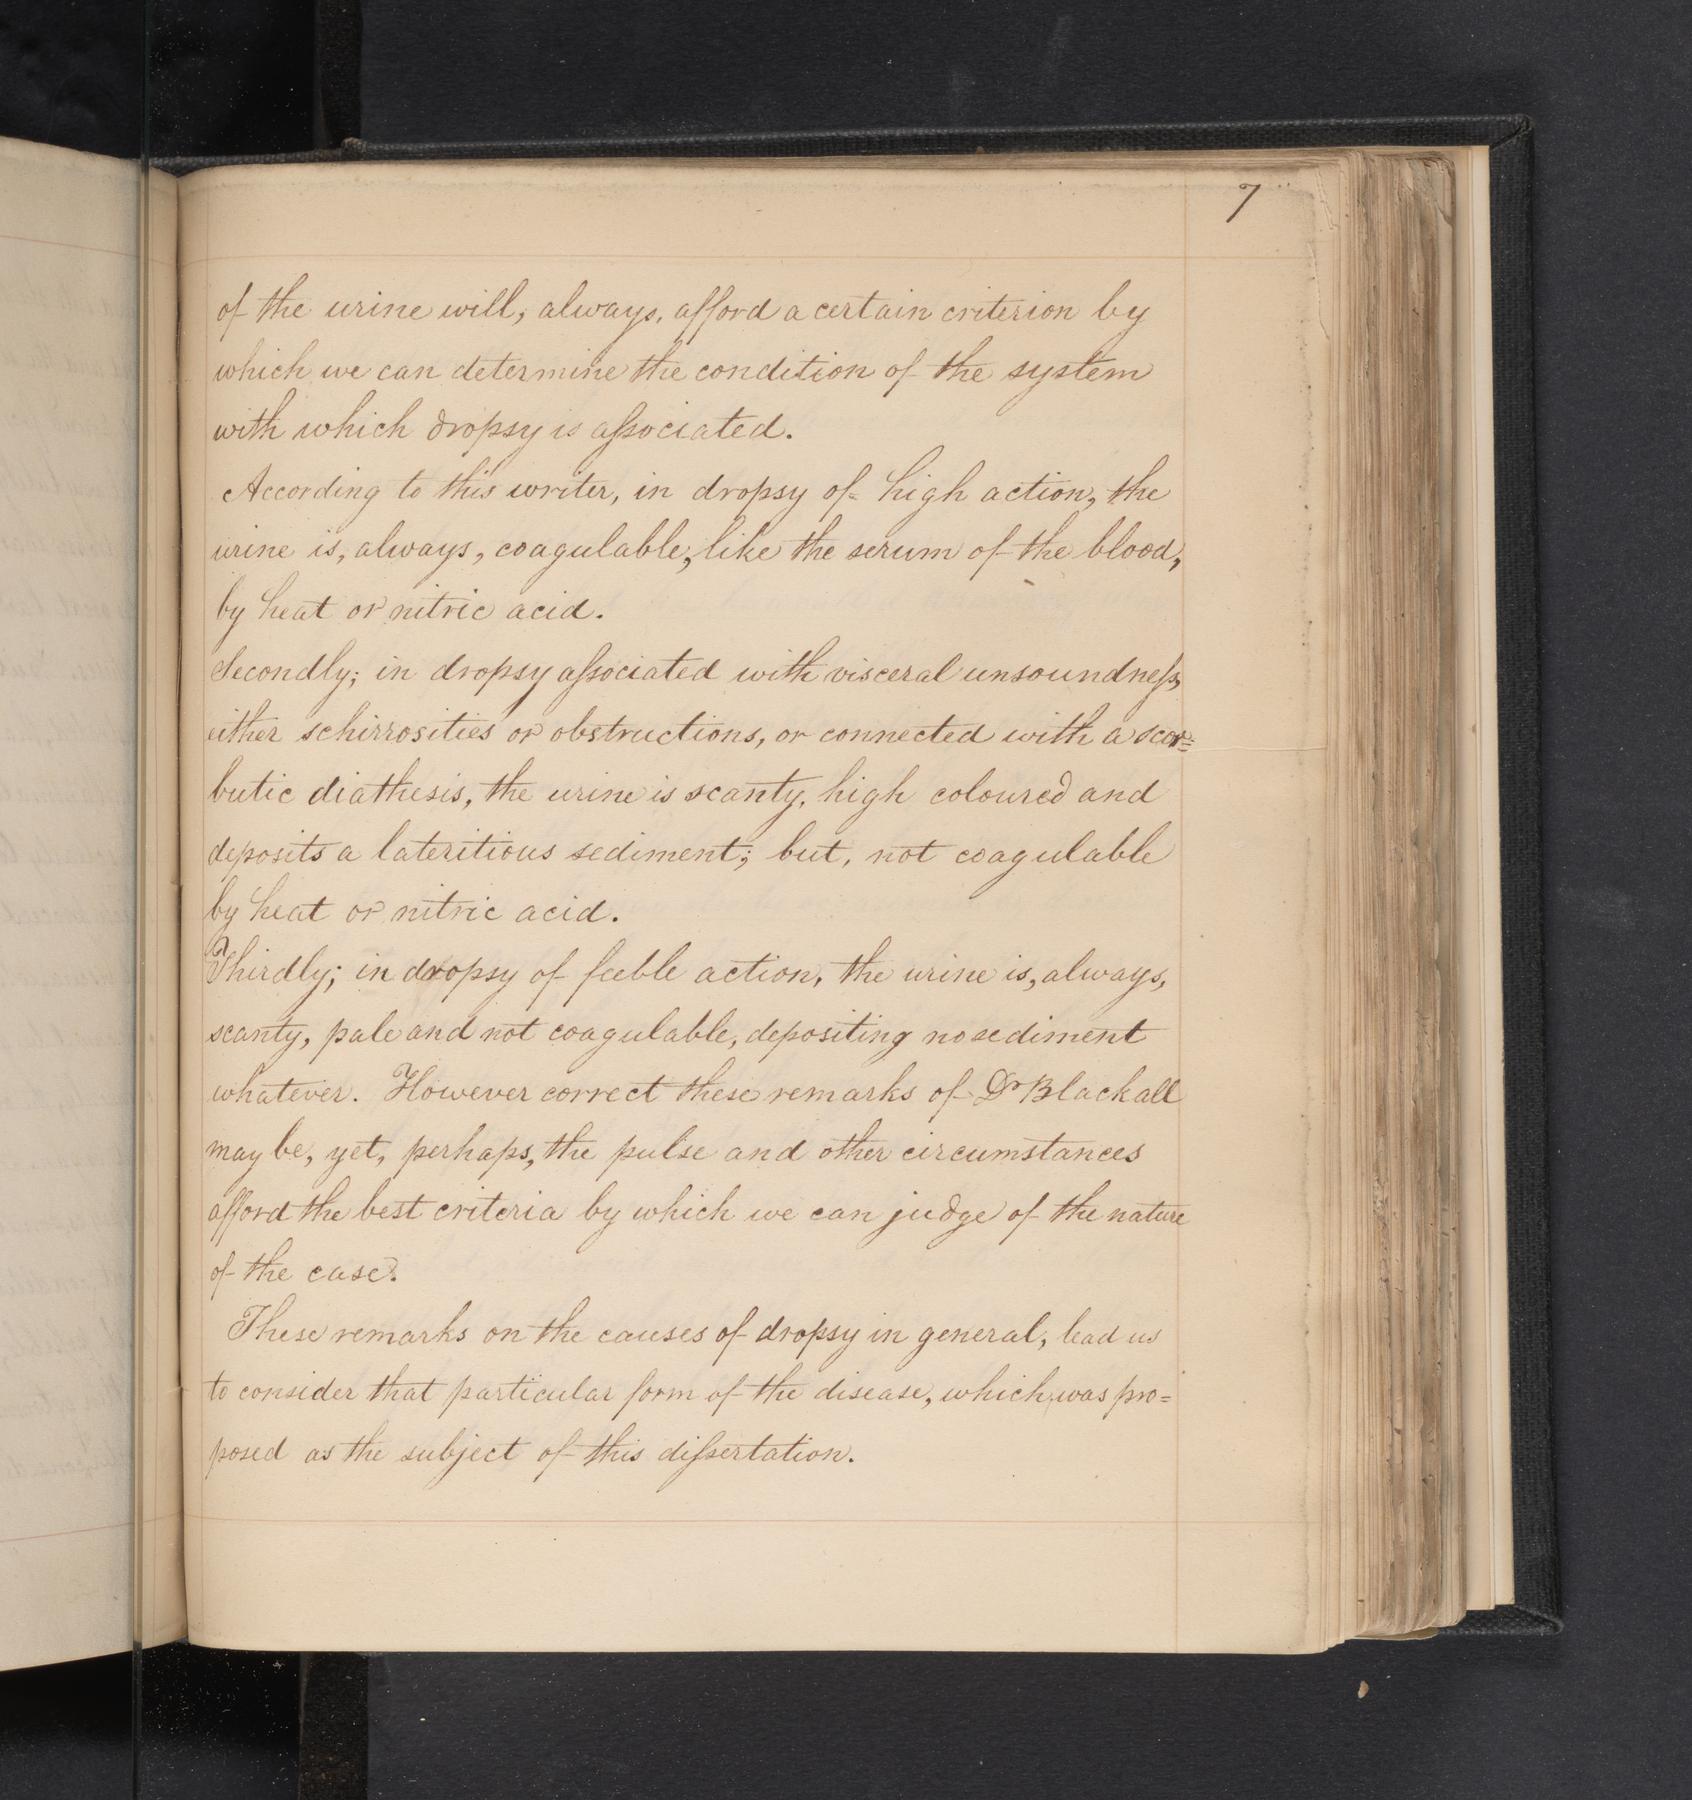 7
of the urine will, always, afford a certain criterion by
which we can determine the condition of the system
with which dropsy is aſsociated.
According to this writer, in dropsy of high action, the
urine is, always, coagulable, like the serum of the blood,
by heat or nitric acid.
Secondly; in dropsy aſsociated with visceral unsoundneſs,
either schirrosities or obstructions, or connected with a scor=
butic diathesis, the urine is scanty, high coloured and
deposits a lateritious sediment; but, not coagulable
by heat or nitric acid.
Thirdly; in dropsy of feeble action, the urine is, always,
scanty, pale and not coagulable, depositing no sediment
whatever. However correct these remarks of Dr Blackall
may be, yet, perhaps, the pulse and other circumstances
afford the best criteria by which we can judge of the nature
of the case.
These remarks on the causes of dropsy in general, lead us
to consider that particular form of the disease, which was pro=
posed as the subject of this diſsertation.